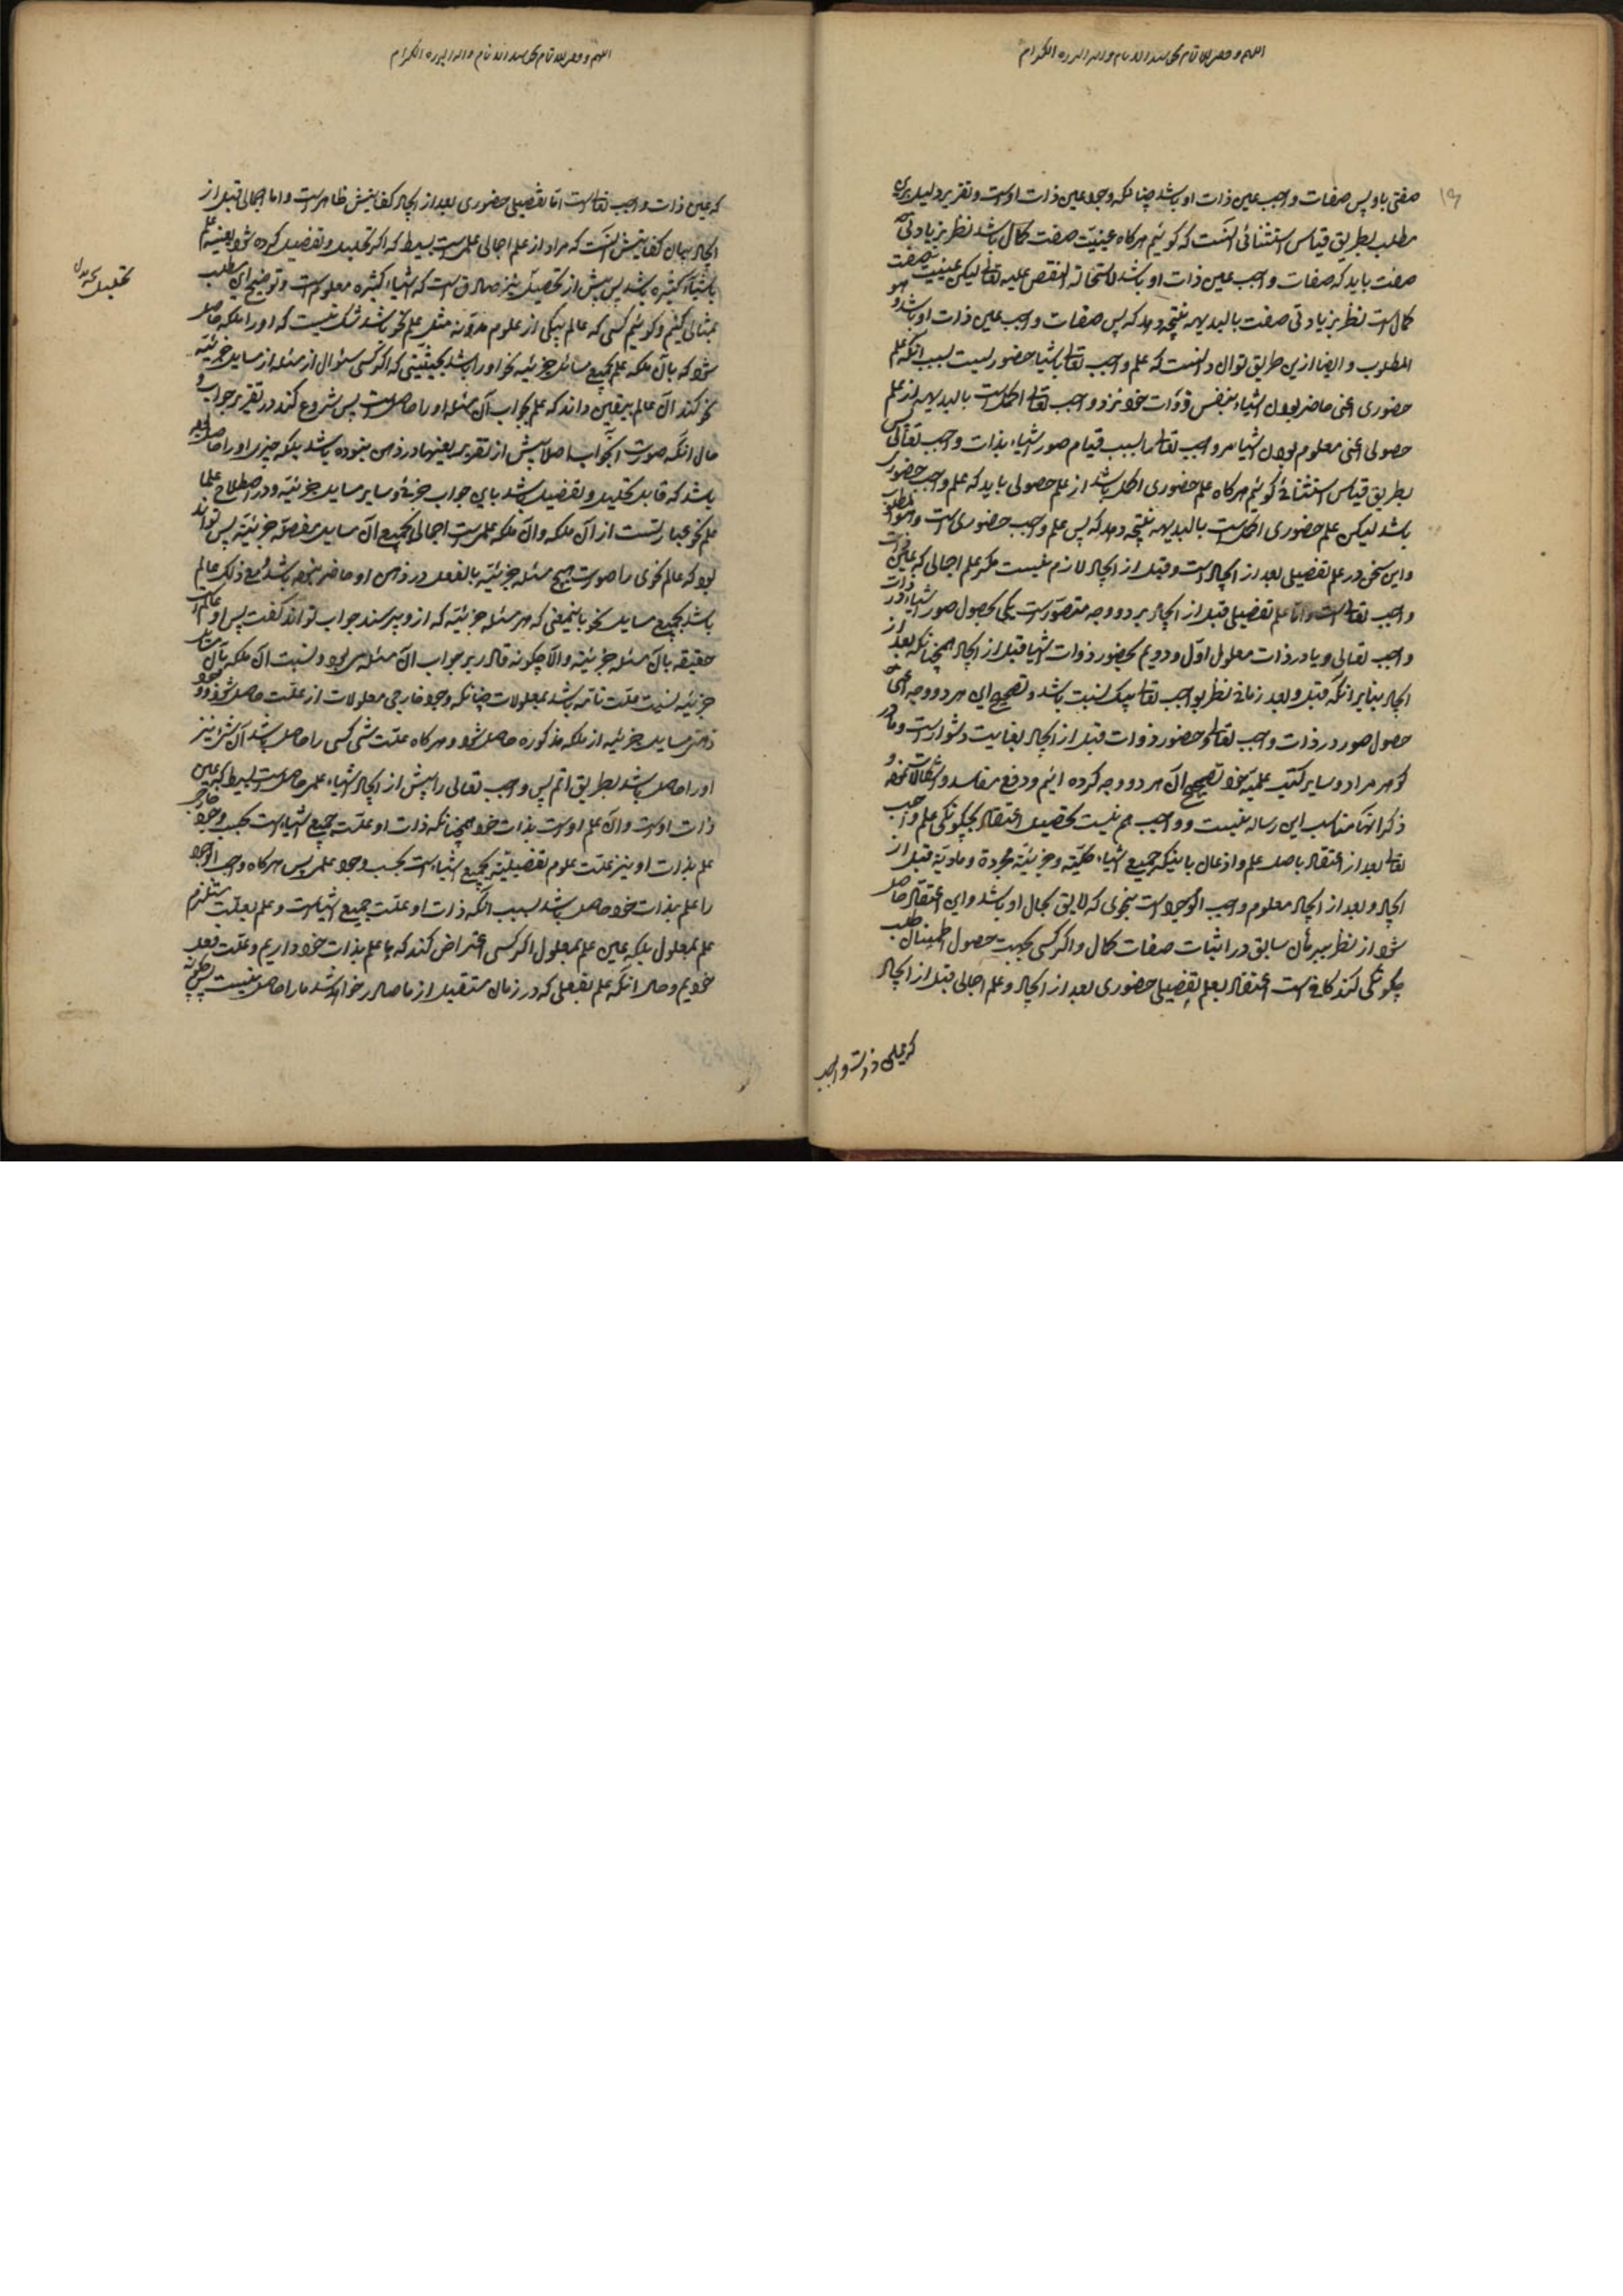 صفتی باو پس صفات واجب عین ذات او باشد چنانکه وجود عین ذات اوست و تقریر دلیل برین
مطلب بطریق قیاس استثنائی آنست که گوئیم هر کاه عینیت صفت کمال باشد نظر بزیادتی
صفت باید که صفات واجب عین ذات او باشد لاستحالة النقص علیه تعالی لیکن عینیت صفت
کمال است نظر بزیادتی صفت بالبدیهه نتیجه دهد که پس صفات واجب عین ذات او باشد و هو
المطلوب و ایضا ازین طریق توان دانست که علم واجب تعالی باشیا حضوریست بسبب آنکه علم
حضوری اعنی حاضر بودن اشیاء بنفس ذوات خود نزد واجب تعالی اکمل است بالبدیهه از علم
حصولی اعنی معلوم بودن اشیا مر واجب تعالی را بسبب قیام صور اشیاء بذات واجب تعالی پس
بطریق قیاس استثنائی گوئیم هر کاه علم حضوری اکمل باشد از علم حصولی باید که علم واجب حضوری
باشد لیکن علم حضوری اکمل است بالبدیهه نتیجه دهد که پس علم واجب حضوری است و هو المطلوب
و این سخن در علم تفصیلی بعد از ایجاد است و قبل از ایجاد لازم نیست مکر علم اجمالی که عین ذات
واجب تعالی است و اما علم تفصیلی قبل از ایجاد بر دو وجه متصور است یکی بحصول صور اشیاء در ذات
واجب تعالی و یا در ذات معلول اول و دویم بحضور ذوات اشیا قبل از ایجاد همچنانکه بعد از
ایجاد بنابر آنکه قبل و بعد زمانی نظر بواجب تعالی بیک نسبت باشد و تصحیح این هر دو وجه اعنی
حصول صور در ذات واجب تعالی و حضور ذوات قبل از ایجاد بغایت دشوار است و ما در
گوهر مراد و سایر کتب علمیه خود تصحیح آن هر دو وجه کرده ایم و دفع مفاسد و اشکالات نموده و
ذکر آنها مناسب این رساله نیست و واجب هم نیست تحصیل اعتقاد بچگونگی علم واجب
تعالی بعد از اعتقاد باصل علم و اذعان باینکه جمیع اشیاء کلیه و جزئیه مجردة و مادیة قبل از
ایجاد و بعد از ایجاد معلوم واجب الوجود است بنحوی که لایق بحال او باشد و این اعتقاد حاصل
شود از نظر ببرهان سابق در اثبات صفات کمال و اگر کسی بجهت حصول اطمینان طلب
چگونگی کند کافی است اعتقاد بعلم تفصیلی حضوری بعد از ایجاد و علم اجمالی قبل از ایجاد
که عین ذات واجب
که عین ذات واجب تعالی است اما تفصیلی حضوری بعد از ایجاد کفایتش ظاهر است و اما اجمالی قبل از
ایجاد بیان کفایتش آنست که مراد از علم اجمالی علمی است بسیط که اگر تحلیل و تفصیل کرده شود بعینه علم
باشیاء کثیره باشد پس پیش از تحلیل نیز صادق است که اشیاء کثیره معلوم است و توضیح این مطلب
بمثالی کنیم و گوئیم کسی که عالم بیکی از علوم مدونه مثل علم نحو باشد شک نیست که او را ملکه حاصل
شود که بآن ملکه علم بجمیع مسائل جزئیه نحو او را باشد بحیثیتی که اگر کسی سئوال از مسئله از مسایل جزئیه
نحو کند آن عالم بیقین داند که علم بجواب آن مسئله او را حاصل است پس شروع کند در تقریر جواب و
حال آنکه صورت آن جواب اصلا پیش از تقریر بعینها در ذهن نبوده باشد بلکه چیزی او را حاصل بوده
باشد که قابل تحلیل و تفصیل باشد باین جواب جزئی و سایر مسایل جزئیه و در اصطلاح علما
علم نحو عبارتست از آن ملکه و آن ملکه علمی است اجمالی بجمیع آن مسایل مفصله جزئیه پس تواند
بود که عالم نحوی را صورت هیچ مسئله جزئیه بالفعل در ذهن او حاضر نبوده باشد و مع ذلک عالم
باشد بجمیع مسایل نحو باینمعنی که هر مسئله جزئیه که ازو پرسند جواب تواند گفت پس او عالم است
حقیقه بآن مسئله جزئیه و الا چگونه قادر بر جواب آن مسئله می بود و نسبت آن ملکه بآن مسایل
جزئیه نسبت علت تامه باشد بمعلولات چنانکه وجود خارجی معلولات از علت حاصل شود وجود
ذهنی مسایل جزئیه از ملکه مذکوره حاصل شود و هر کاه علت شئ کسی را حاصل باشد آن شئ نیز
او را حاصل باشد بطریق اتم پس واجب تعالی را پیش از ایجاد اشیاء علمی حاصل است بسیط که عین
ذات اوست و آن علم اوست بذات خود همچنانکه ذات او علت جمیع اشیاء است بحسب وجود خارجی
علم بذات او نیز علت علوم تفصیلیة بجمیع اشیاء است بحسب وجود علمی پس هر کاه واجب الوجود
را علم بذات خود حاصل باشد بسبب آنکه ذات او علت جمیع اشیا است و علم بعلت مستلزم
علم بمعلول بلکه عین علم بمعلول اگر کسی اعتراض کند که ما علم بذات خود داریم و علت فعل
خودیم و حال آنکه علم بفعلی که در زمان مستقبل از ما صادر خواهد شد ما را حاصل نیست پس چگونه